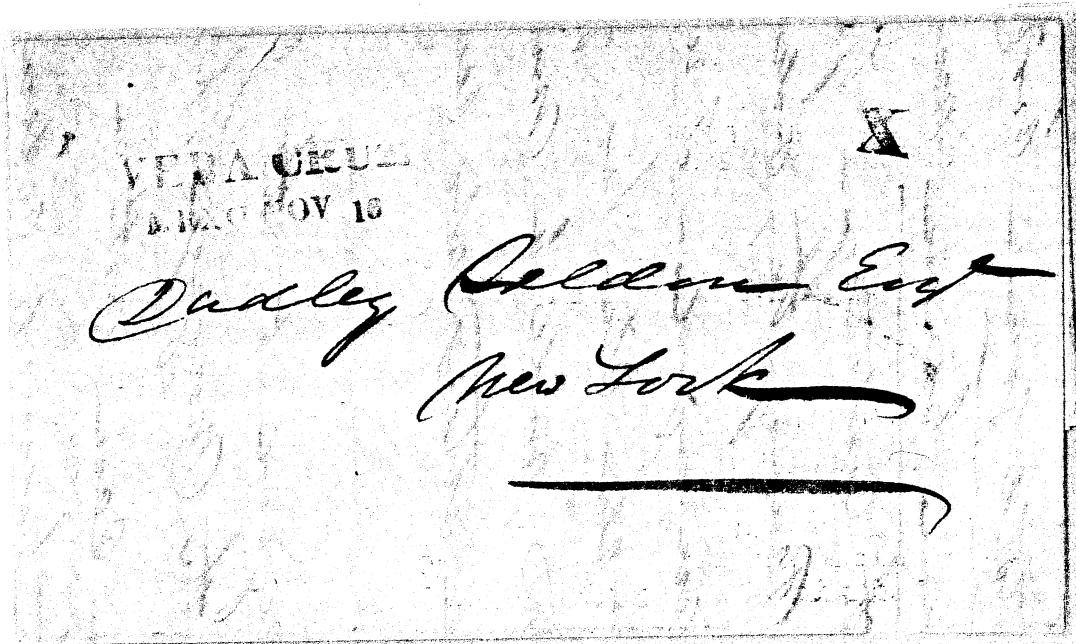 VERA CRUZ X
NOV 16
Dudley Selden Esqr
New York